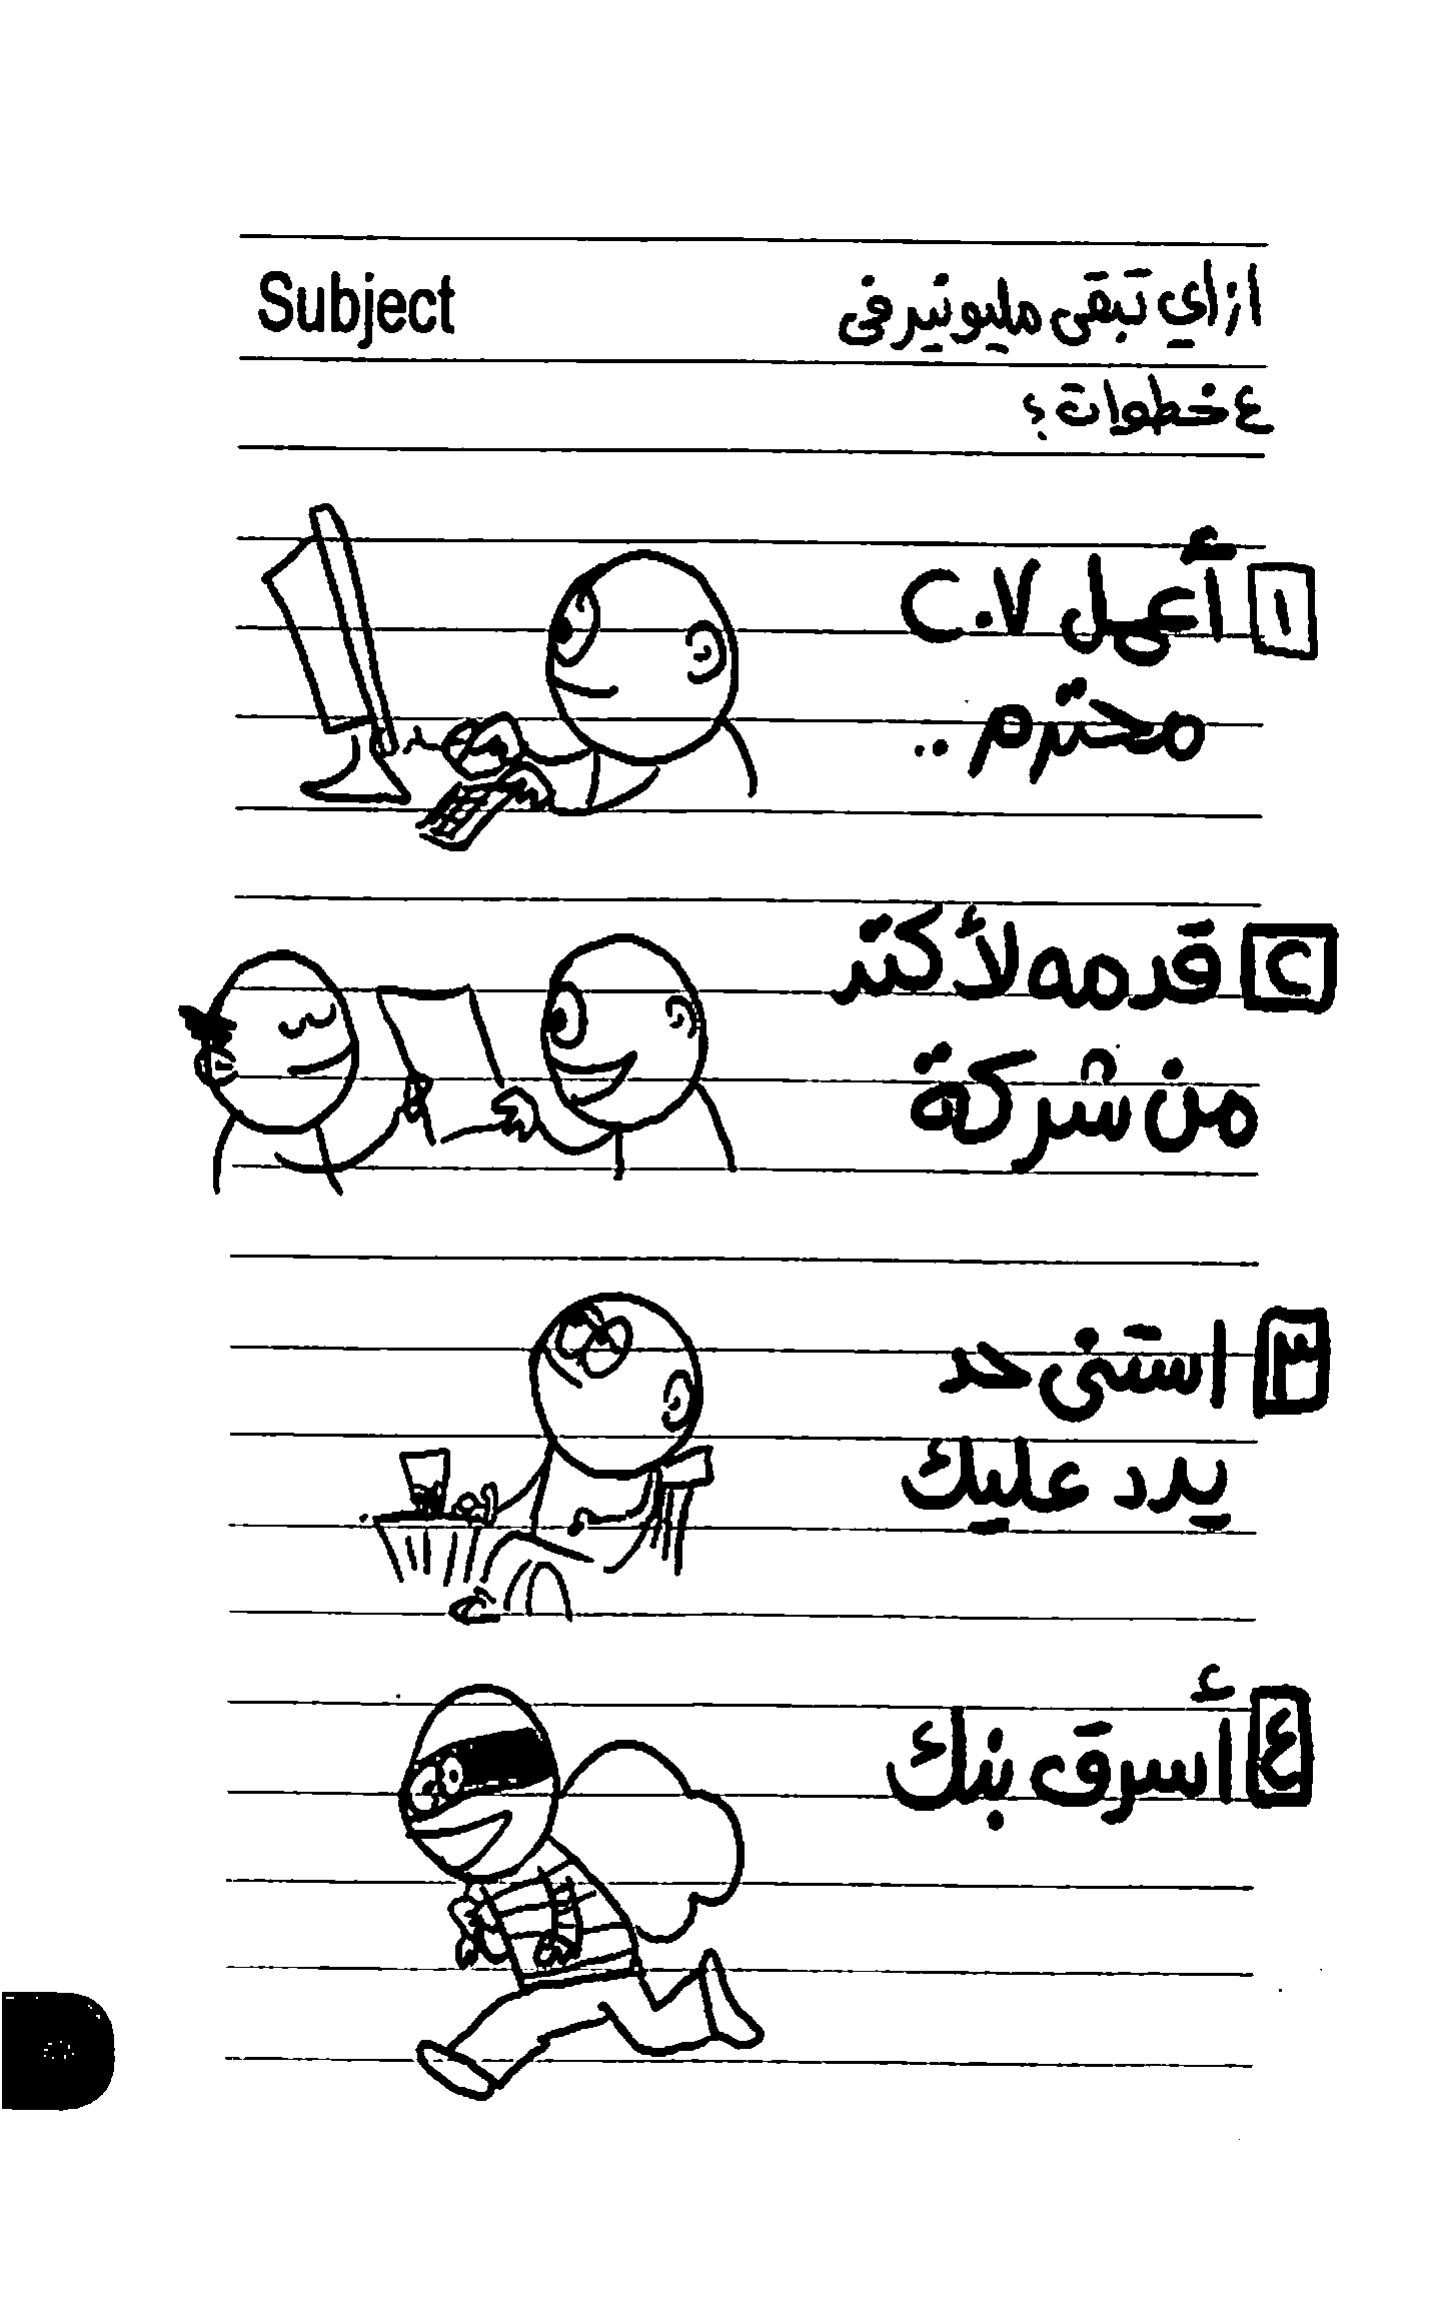 Subject
ازاي تبقى مليونير فى
٤ خطوات؟
١ أعمل C.V
محترم ..
٢ قدمه لأكتر
من شركة
٣ استنى حد
يرد عليك
٤ أسرق بنك